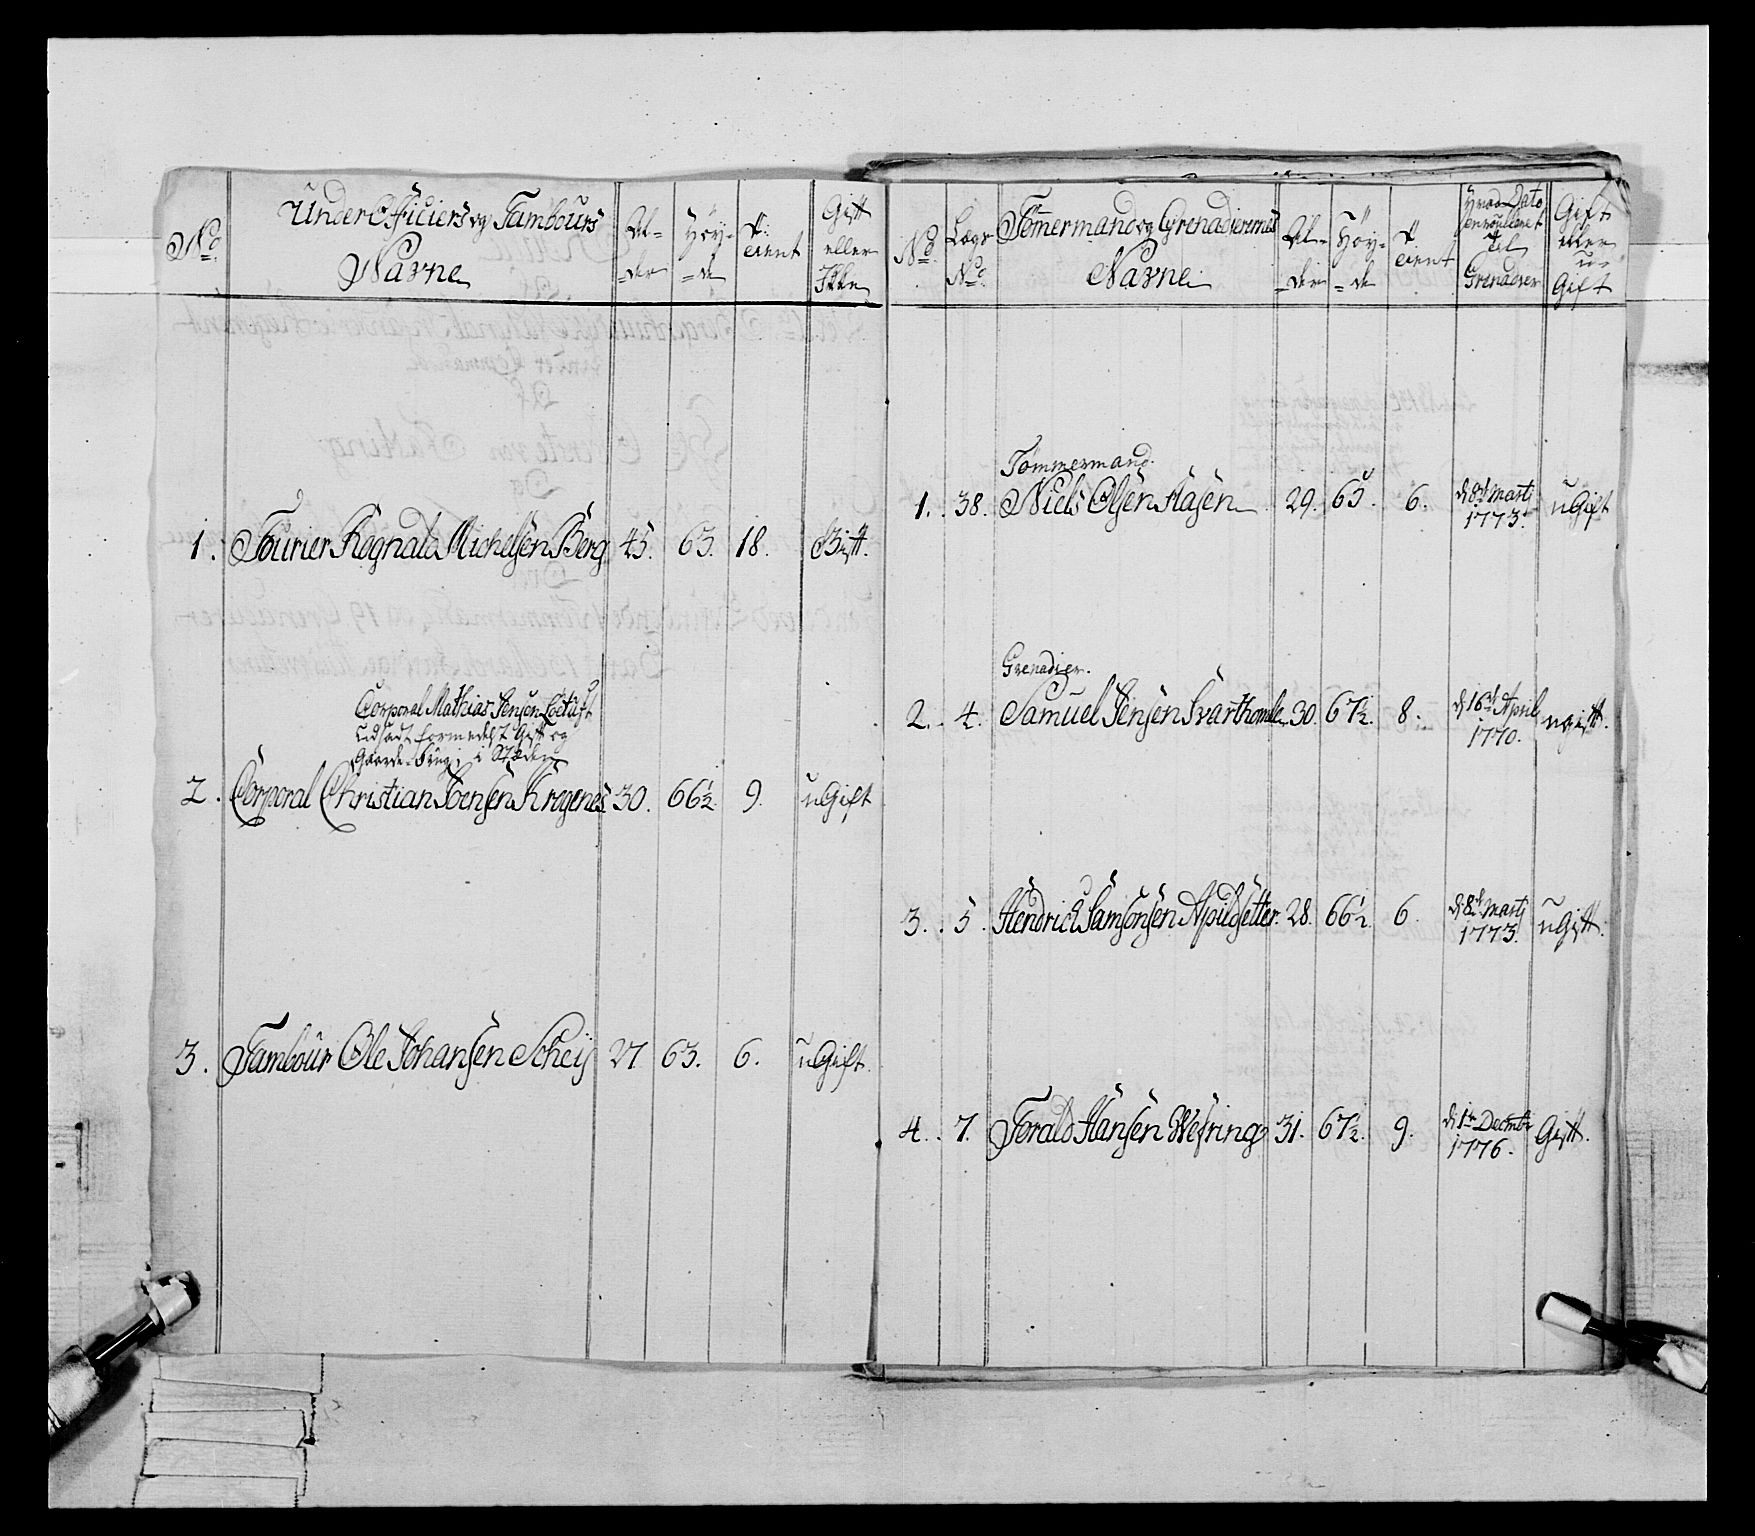 No. | Under Officiers og Tambours Navne | Al-der | Höy-de | Tient | Gift eller Ikke
1. Fourier Regnald Michelsen Berg 45. 63. 18. Gift.
Corporal Mathias Jensen
Udsadt formedelst Gift og
Gaard- i Stæden
2. Corporal Christian Joensen Krogenes 30. 66½ 9. uGift
3. Tambour Ole Johansen Scheij 27 63. 6. uGift.
No. | Lægs No. | Tömmermand og Grenadierernes Navne | Al-der | Höy-de | Tient | Hvad Dato enroulleret til Grenadier | Gift eller u-Gift
Tömmermand.
1. 38. Niels Olsen Aasen 29. 65. 6. d 8de Marti 1773. uGift
Grenadier.
2. 4. Samuel Jensen Svarthomle 30. 67½. 8. d 16de April 1770. ugift.
3. 5. Hendrich Samsonsen Apildsetter. 28. 66½ 6. d 8de Marti 1773. uGift.
4. 7. Torald Hansen Wefring 31. 67½. 9. d 1te Decmbr 1776. Gift.